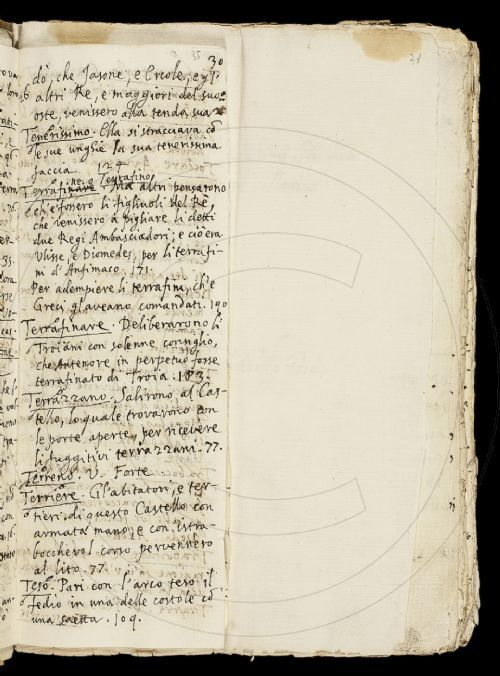 30
dò, che Jasone, e Ercole, e gl'
altri Re, e maggiori del suo
oste, venissero alla tenda sua
Tenerissimo. Ella si stracciava cō
le sue unghie la sua tenerissima
faccia. 124
Terrafinare o Terrafino. Ma altri pensarono
ch'e' fossero li figliuoli del Re,
che venissero a pigliare li detti
due Regi Ambasciadori; e cio era
Ulisse, e Diomedes, per li terrafi-
ni d'Antimaco. 171.
Per adempiere li terrafini, ch'e
Greci gl'aveano comandati. 190
Terrafinare. Deliberarono li
Troiani con solenne consiglio,
che Antenore in perpetuo fosse
terrafinato di Troia. 183.
Terrazzano. Salirono al Cas-
tello, lo quale trovarono con
le porte aperte, per ricevere
li fuggitivi terrazzani. 77.
Terreno. V. Forte
Terriere. Gl'abitatori, e ter-
rieri di questo Castello con
armata mano, e con istra-
bocchevol corso pervennero
al lito. 77.
Teso. Pari con l'arco teso il
fedio in una delle costole cō
una saetta. 109.
31